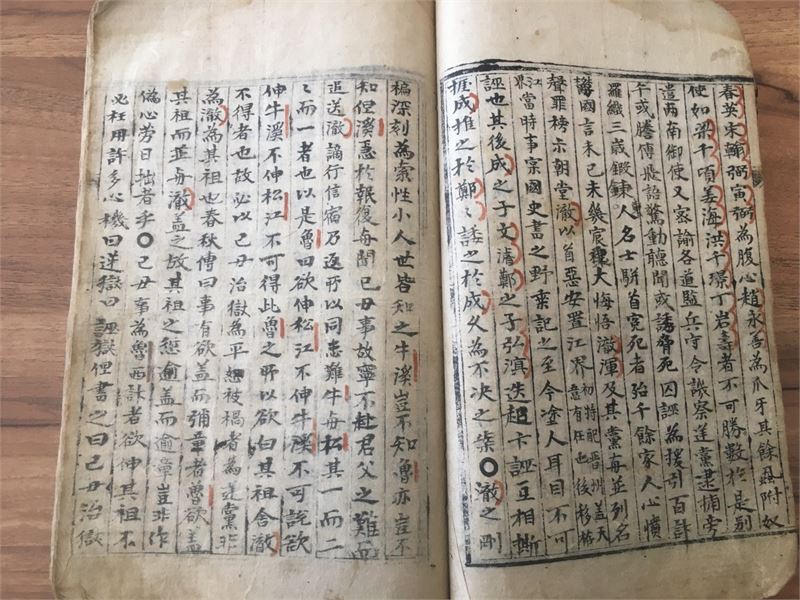 春英宋翰弼寅弼為腹心趙永善為爪牙其餘蝨附奴
使如梁千頃姜海洪千璟丁岩壽者不可勝數於是別
遣两南御使又密諭各道監兵守令譏察逆黨逮捕旁
午或騰傳蜚語驚動聽聞或誘脅死囚誣為援引百計
羅織三歲鍛鍊人名士駢首寃死者殆千餘家人心憤
國言未已未幾宸大悔悟澈渾及其黨每並列名
聲罪榜示朝堂澈以首惡安置江界初特配晋州盖天意有在也後移
江界當時事國史書之野乘記之至今塗人耳目不可
誣也其後成之子文濬鄭之子弘溟迭起卞誣互相撕
捱成推之於鄭〻諉之於成久為不决之案○澈之剛
褊深刻為索性小人世皆知之牛溪豈不知魯亦豈不
知但溪於報復每聞己丑事故寧不赴君父之難而
追送澈謫行信宿乃返所以同志難牛每其一而二
〻而一者也以是魯曰欲伸松江不伸牛溪不可説欲
伸牛溪不伸松江不可得此魯之所以欲白其祖舍澈
不得者也故必以己丑治獄為平恕被禍者為逆黨非
為澈為其祖也春秋傳曰事有欲盖而彌章者魯欲盖
其祖而並每澈盖之故其祖之愆逾盖而逾章豈非作
偽心劳日拙者乎○己丑事為魯西計者欲伸其祖不
必枉用許多心機曰逆獄曰誣獄但書之曰己丑治獄